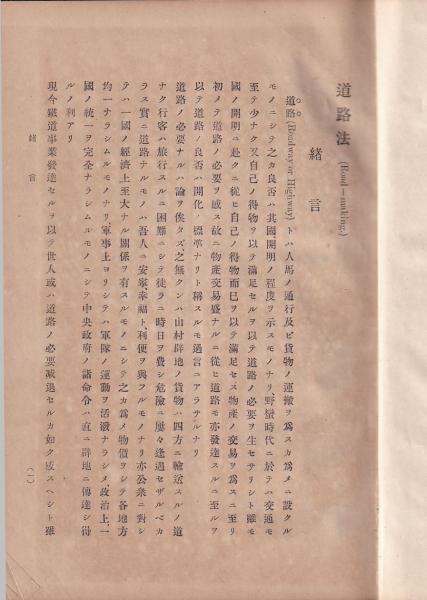 道路法 (Road-making.)
緒言
道路(Roadway or Highway)トハ人馬ノ通行及ビ貨物ノ運搬ヲ爲スカ爲メニ設クル
モノニシテ之カ良否ハ其國開明ノ程度ヲ示スモノナリ、野蠻時代ニ於テハ交通モ
至テ少ナク又自己ノ得物ヲ以テ滿足セルヲ以テ道路ノ必要ヲ生セサリシト雖モ
國ノ開明ニ赴クニ從ヒ自己ノ得物而已ヲ以テ滿足セス物產ノ交易ヲ爲スニ至リ
初メテ道路ノ必要ヲ感ス故ニ物產交易盛ナルニ從ヒ道路モ亦發達スルニ至ルヲ
以テ道路ノ良否ハ開化ノ標準ナリト稱スルモ過言ニアラサルナリ
道路ノ必要ナルハ論ヲ俟タズ、之無クンハ山村僻地ノ貨物ハ四方ニ輸送スルノ道
ナク行客ハ旅行スルニ困難ニシテ徒ラニ時日ヲ費シ危險ニ屢々逢遇セザルベカ
ラス實ニ道路ナルモノハ吾人ニ安寧、幸福ト、利便ヲ與フルモノナリ亦公衆ニ對シ
テハ一國ノ經濟上至大ナル關係ヲ有スルモノニシテ之カ爲メ物價ヲシテ各地方
均一ナラシムルモノナリ、軍事上ヨリシテハ軍隊ノ運動ヲ活潑ナラシメ政治上、一
國ノ統一ヲ完全ナラシムスモノニシテ中央政府ノ諸命令ハ直ニ僻地ニ傳達シ得
ルノ利アリ
現今鐵道事業發達セルヲ以テ世人或ハ道路ノ必要減退セルカ如ク感スヘシト雖
緒言
(一)